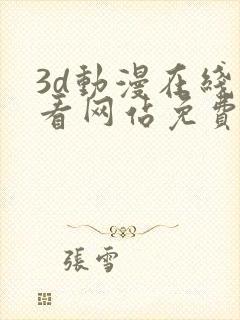 3d動漫在綫
看网佔免費
張雪